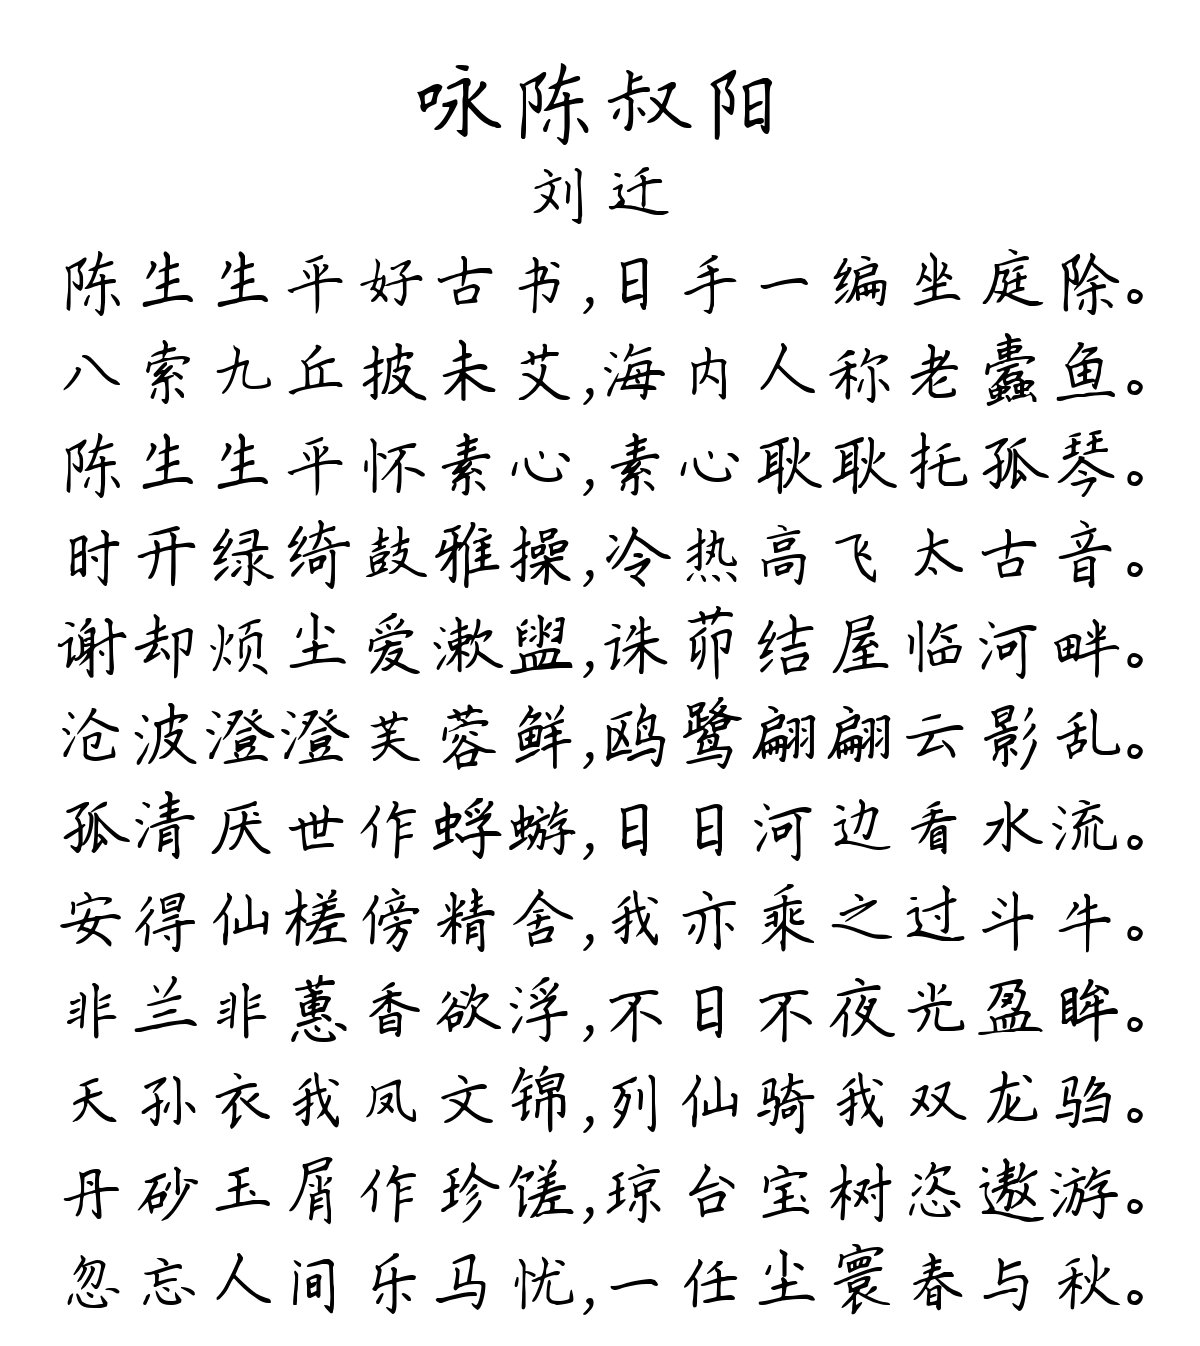 咏陈叔阳
刘迁
陈生生平好古书,日手一编坐庭除。
八索九丘披未艾,海内人称老蠹鱼。
陈生生平怀素心,素心耿耿托孤琴。
时开绿绮鼓雅操,冷热高飞太古音。
谢却烦尘爱漱盥,诛茆结屋临河畔。
沧波澄澄芙蓉鲜,鸥鹭翩翩云影乱。
孤清厌世作蜉蝣,日日河边看水流。
安得仙槎傍精舍,我亦乘之过斗牛。
非兰非蕙香欲浮,不日不夜光盈眸。
天孙衣我凤文锦,列仙骑我双龙驺。
丹砂玉屑作珍馐,琼台宝树恣遨游。
忽忘人间乐马忧,一任尘寰春与秋。